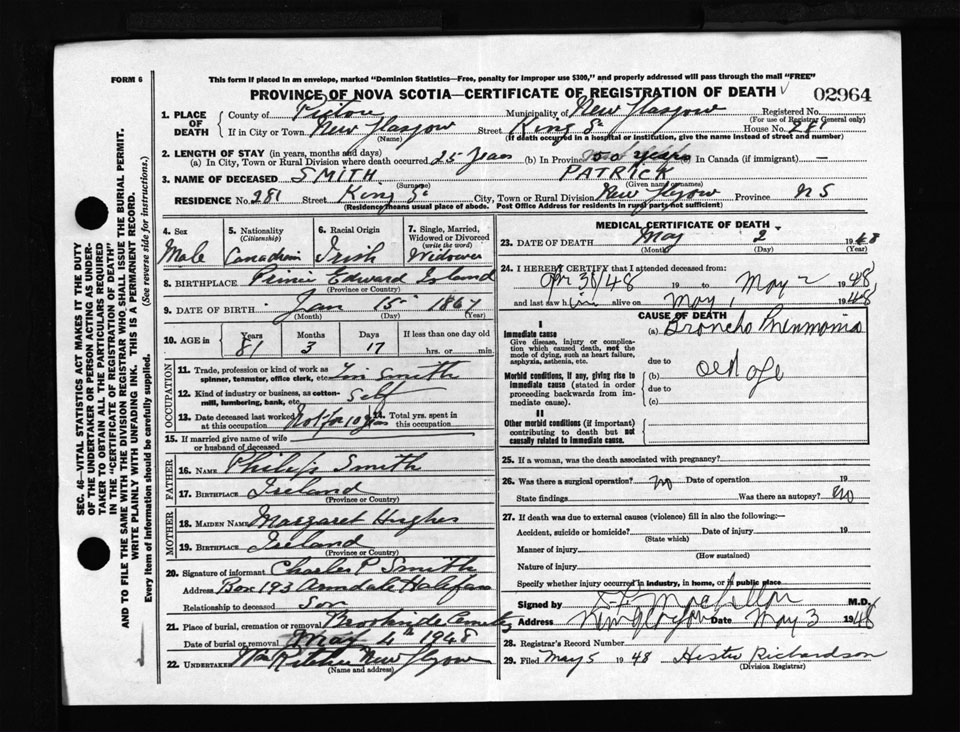 FORM 6
This form if placed in an envelope, marked "Dominion Statistics—Free, penalty for improper use $300," and properly addressed will pass through the mail "FREE"
PROVINCE OF NOVA SCOTIA—CERTIFICATE OF REGISTRATION OF DEATH
02964
1. PLACE OF DEATH
County of Pictou Municipality of New Glasgow Registered No.
(For use of Registrar General only)
If in City or Town New Glasgow Street King St House No. 281
(Name) (If death occurred in a hospital or institution, give the name instead of street and number)
2. LENGTH OF STAY (in years, months and days)
(a) In City, Town or Rural Division where death occurred 25 Years (b) In Province 50 years In Canada (if immigrant) —
3. NAME OF DECEASED SMITH PATRICK
(Surname) (Given name or names)
RESIDENCE No. 281 Street King St City, Town or Rural Division New Glasgow Province NS
(Residence means usual place of abode. Post Office Address for residents in rural parts not sufficient)
4. Sex
Male
5. Nationality
(Citizenship)
Canadian
6. Racial Origin
Irish
7. Single, Married, Widowed or Divorced
(write the word)
Widower
8. BIRTHPLACE Prince Edward Island
(Province or Country)
9. DATE OF BIRTH Jan 15 1867
(Month) (Day) (Year)
10. AGE in
Years Months Days If less than one day old
81 3 17 hrs. or min.
OCCUPATION
11. Trade, profession or kind of work as spinner, teamster, office clerk, etc. Tin Smith
12. Kind of industry or business, as cotton-mill, lumbering, bank, etc. Self
13. Date deceased last worked at this occupation Not for 10 yrs
14. Total yrs. spent in this occupation
15. If married give name of wife or husband of deceased
FATHER
16. NAME Philip Smith
17. BIRTHPLACE Ireland
(Province or Country)
MOTHER
18. MAIDEN NAME Margaret Hughes
19. BIRTHPLACE Ireland
(Province or Country)
20. Signature of informant Charles P Smith
Address Box 193 Armdale Halifax
Relationship to deceased Son
21. Place of burial, cremation or removal Brookside Cemetery
Date of burial or removal May 4th 1948
22. UNDERTAKER Ritchie New Glasgow
(Name and address)
MEDICAL CERTIFICATE OF DEATH
23. DATE OF DEATH May 2 1948
(Month) (Day) (Year)
24. I HEREBY CERTIFY that I attended deceased from:
Apr 30/48 19 to May 2 1948
and last saw him alive on May 1 1948
CAUSE OF DEATH
I
Immediate cause
Give disease, injury or complication which caused death, not the mode of dying, such as heart failure, asphyxia, asthenia, etc.
(a) Broncho Pneumonia
due to
Morbid conditions, if any, giving rise to immediate cause (stated in order proceeding backwards from immediate cause).
(b) old age
due to
(c)
II
Other morbid conditions (if important) contributing to death but not causally related to immediate cause.
25. If a woman, was the death associated with pregnancy?
26. Was there a surgical operation? no Date of operation 19
State findings Was there an autopsy? no
27. If death was due to external causes (violence) fill in also the following:—
Accident, suicide or homicide? Date of injury 19
(State which)
Manner of injury
(How sustained)
Nature of injury
Specify whether injury occurred in industry, in home, or in public place
Signed by M.D.
Address New Glasgow Date May 3 1948
28. Registrar's Record Number
29. Filed May 5 1948 Hester Richardson
(Division Registrar)
SEC. 46—VITAL STATISTICS ACT MAKES IT THE DUTY
OF THE UNDERTAKER OR PERSON ACTING AS UNDER-
TAKER TO OBTAIN ALL THE PARTICULARS REQUIRED
IN THE "CERTIFICATE OF REGISTRATION OF DEATH"
AND TO FILE THE SAME WITH THE DIVISION REGISTRAR WHO SHALL ISSUE THE BURIAL PERMIT.
WRITE PLAINLY WITH UNFADING INK. THIS IS A PERMANENT RECORD.
Every item of information should be carefully supplied. (See reverse side for instructions.)